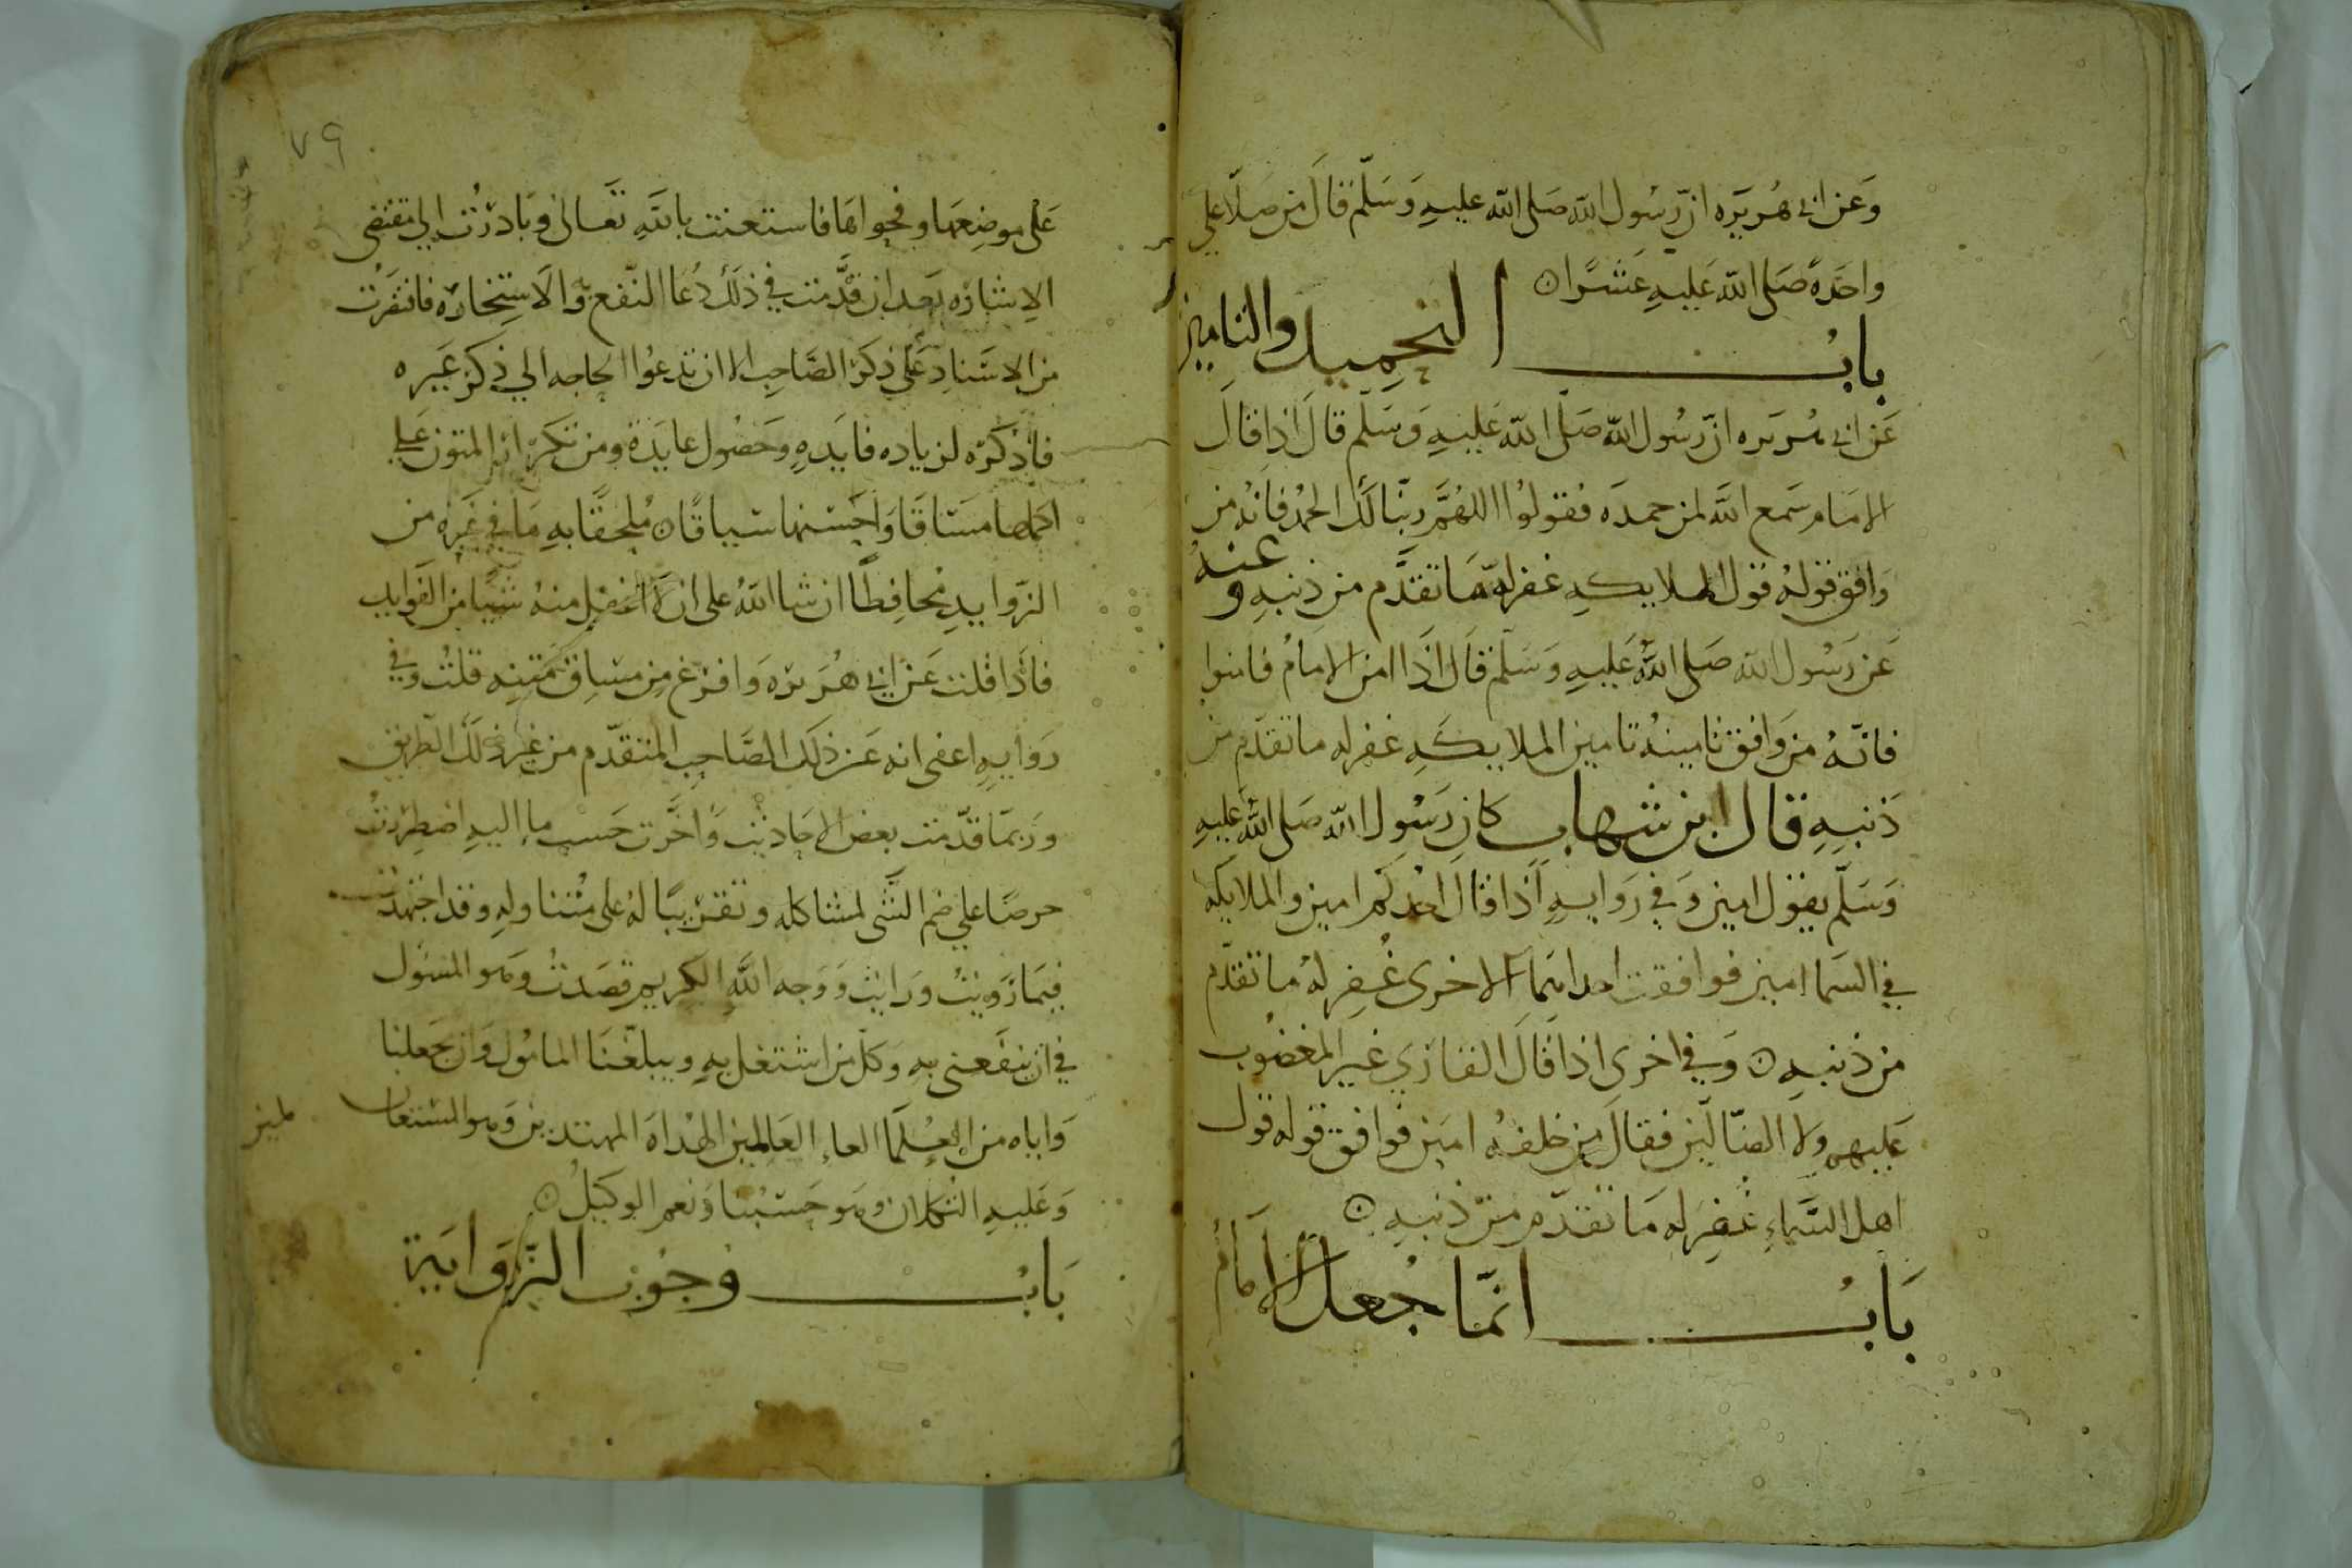 وعن ابي هريره ان رسول الله صلى الله عليه وسلم قال من صلا علي
واحدة صلى الله عليه عشرا
باب التحميد والتامين
عن ابي هريره ان رسول الله صلى الله عليه وسلم قال اذا قال
الامام سمع الله لمن حمده فقولوا اللهم ربنا لك الحمد فانه من
وافق قوله قول الملايكه غفر له ما تقدم من ذنبه وعنه
عن رسول الله صلى الله عليه وسلم قال اذا امن الامام فامنوا
فانه من وافق تامينه تامين الملايكه غفر له ما تقدم من
ذنبه قال ابن شهاب كان رسول الله صلى الله عليه
وسلم يقول امين وفي روايه اذا قال احدكم امين والملايكه
في السما امين فوافقت احداهما الاخرى غفر له ما تقدم
من ذنبه وفي اخرى اذا قال القاري غير المغضوب
عليهم ولا الضالين فقال من خلفه امين فوافق قوله قول
اهل السماء غفر له ما تقدم من ذنبه
باب انما جعل الامام
٧٩
على موضعها وفحواها فاستعنت بالله تعالى وبادرت الي مقتضى
الاشاره بعد ان قدمت في ذلك دعا النفع والاستخاره فاقتصرت
من الاسناد على ذكر الصاحب الا ان تدعوا الحاجه الي ذكر غيره
فاذكره لزياده فايده وحصول عايدة ومن تكرار المتون علي
اكملها مساقا واحسنها سياقا ملحقا به ما في غيره من
الزوايد محافظا ان شا الله على ان لا اغفل منه شيا من الفوايد
فاذا قلت عن ابي هريره وافرغ من مساق متنه قلت وفي
روايه اعني انه عن ذلك الصاحب المتقدم من غير ذلك الطريق
وربما قدمت بعض الاحاديث واخرت حسب ما اليه اضطررت
حرصا علي ضم الشي لمشاكله وتقريبا له على متناوله وقد اجتهدت
فيما رويت ورايت ووجه الله الكريم قصدت وهو المسول
في ان ينفعني به وكل من اشتغل به ويبلغنا المامول وان يجعلنا
واياه من العلما العا العالمين الهداه المهتدين وهو المستعان
وعليه التكلان وهو حسبنا ونعم الوكيل
باب وجوب